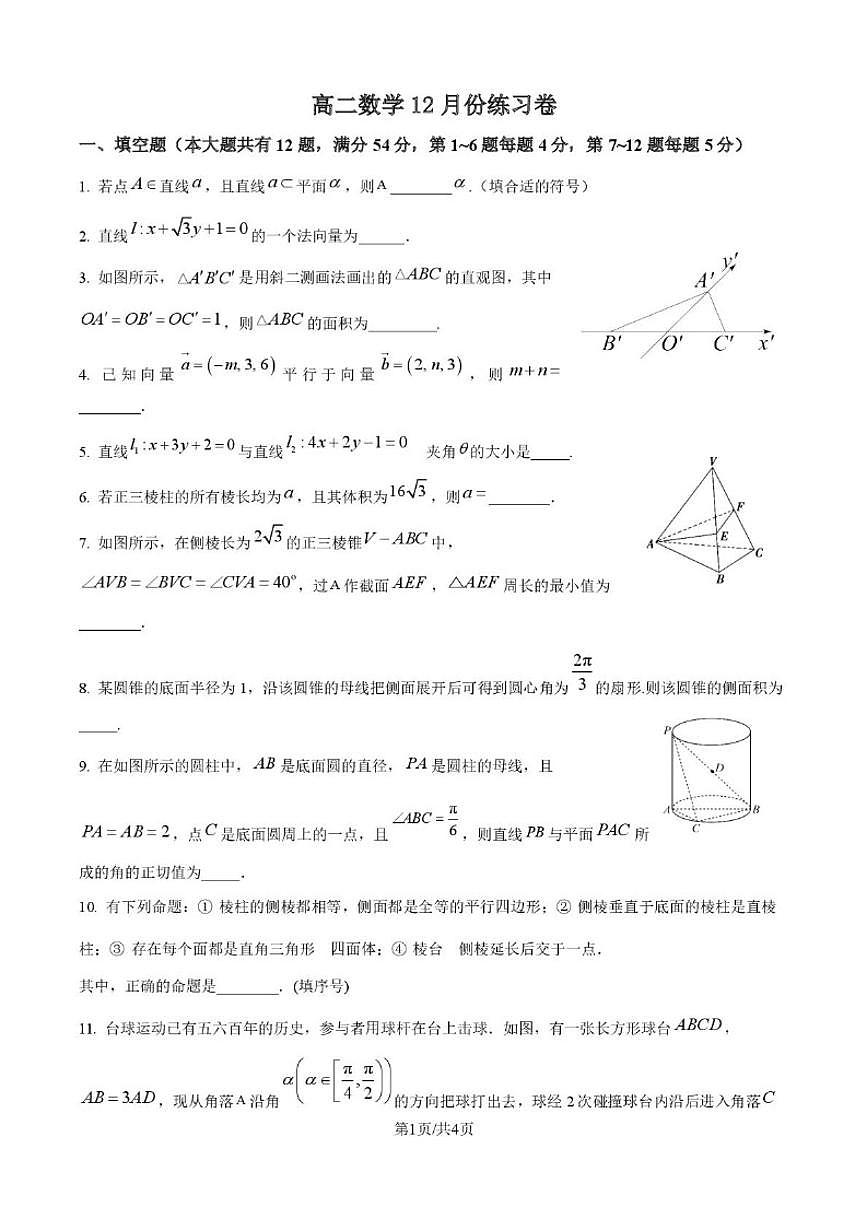 高二数学 12 月份练习卷
一、填空题（本大题共有 12 题，满分 54 分，第 1~6 题每题 4 分，第 7~12 题每题 5 分）
1. 若点 A∈直线 a，且直线 a⊂平面 α，则 A ________ α.（填合适的符号）
2. 直线 l:x+√3y+1=0 的一个法向量为______．
3. 如图所示，△A′B′C′ 是用斜二测画法画出的 △ABC 的直观图，其中
OA′=OB′=OC′=1，则 △ABC 的面积为_________.
y′
A′
B′ O′ C′ x′
4. 已知向量 a⃗=(−m,3,6) 平行于向量 b⃗=(2,n,3)，则 m+n=
________.
5. 直线 l₁:x+3y+2=0 与直线 l₂:4x+2y−1=0 夹角 θ 的大小是_____.
6. 若正三棱柱的所有棱长均为 a，且其体积为 16√3，则 a=________．
7. 如图所示，在侧棱长为 2√3 的正三棱锥 V−ABC 中，
∠AVB=∠BVC=∠CVA=40°，过 A 作截面 AEF，△AEF 周长的最小值为
________．
V
F
E
A
C
B
8. 某圆锥的底面半径为 1，沿该圆锥的母线把侧面展开后可得到圆心角为 2π/3 的扇形.则该圆锥的侧面积为
_____.
9. 在如图所示的圆柱中，AB 是底面圆的直径，PA 是圆柱的母线，且
PA=AB=2，点 C 是底面圆周上的一点，且 ∠ABC=π/6，则直线 PB 与平面 PAC 所
成的角的正切值为_____．
P
D
A B
C
10. 有下列命题：① 棱柱的侧棱都相等，侧面都是全等的平行四边形；② 侧棱垂直于底面的棱柱是直棱
柱；③ 存在每个面都是直角三角形 四面体；④ 棱台 侧棱延长后交于一点．
其中，正确的命题是________．(填序号)
11. 台球运动已有五六百年的历史，参与者用球杆在台上击球．如图，有一张长方形球台 ABCD，
AB=3AD，现从角落 A 沿角 α(α∈[π/4,π/2)) 的方向把球打出去，球经 2 次碰撞球台内沿后进入角落 C
第1页/共4页